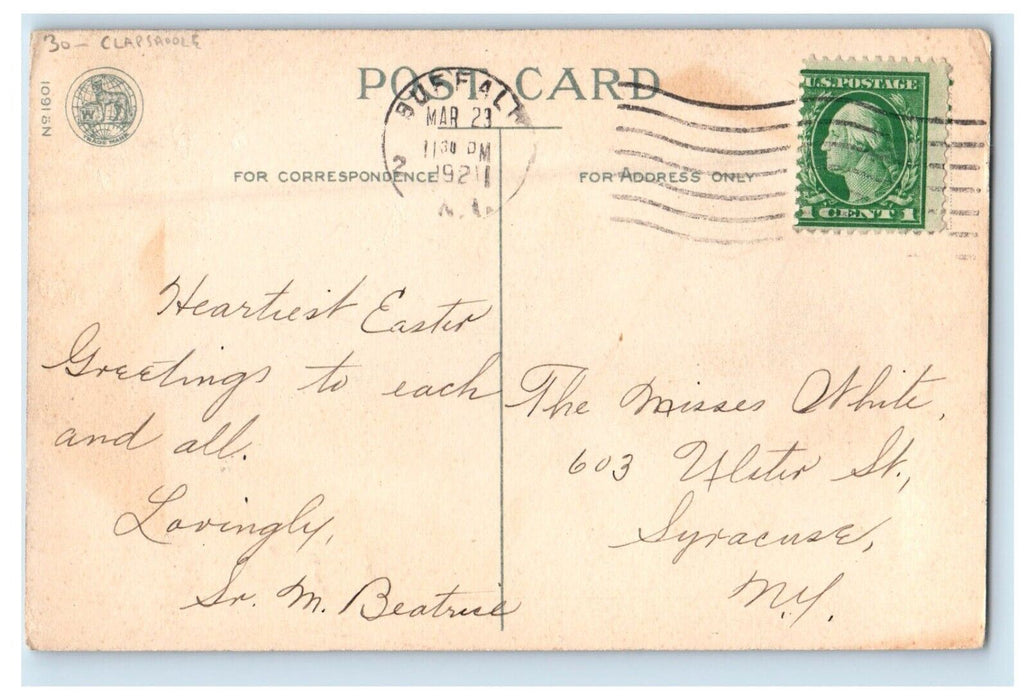 30- CLAPSADDLE
No 1601
TRADE MARK
POST CARD
BUFFALO
MAR 23
11 30 PM
1921
N.Y.
2
U.S. POSTAGE
1 CENT 1
FOR CORRESPONDENCE
FOR ADDRESS ONLY
Heartiest Easter
Greetings to each
and all.
Lovingly,
Sr. M. Beatrice
The Misses White,
603 Ulster St.,
Syracuse,
N.Y.